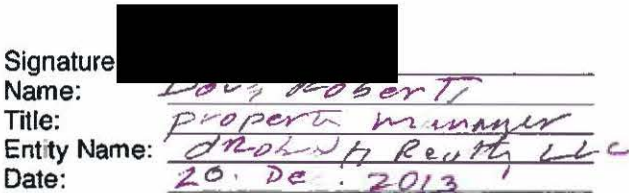 Signature
Name: Doug Roberts
Title: property manager
Entity Name: Realty LLC
Date: 20. De . 2013